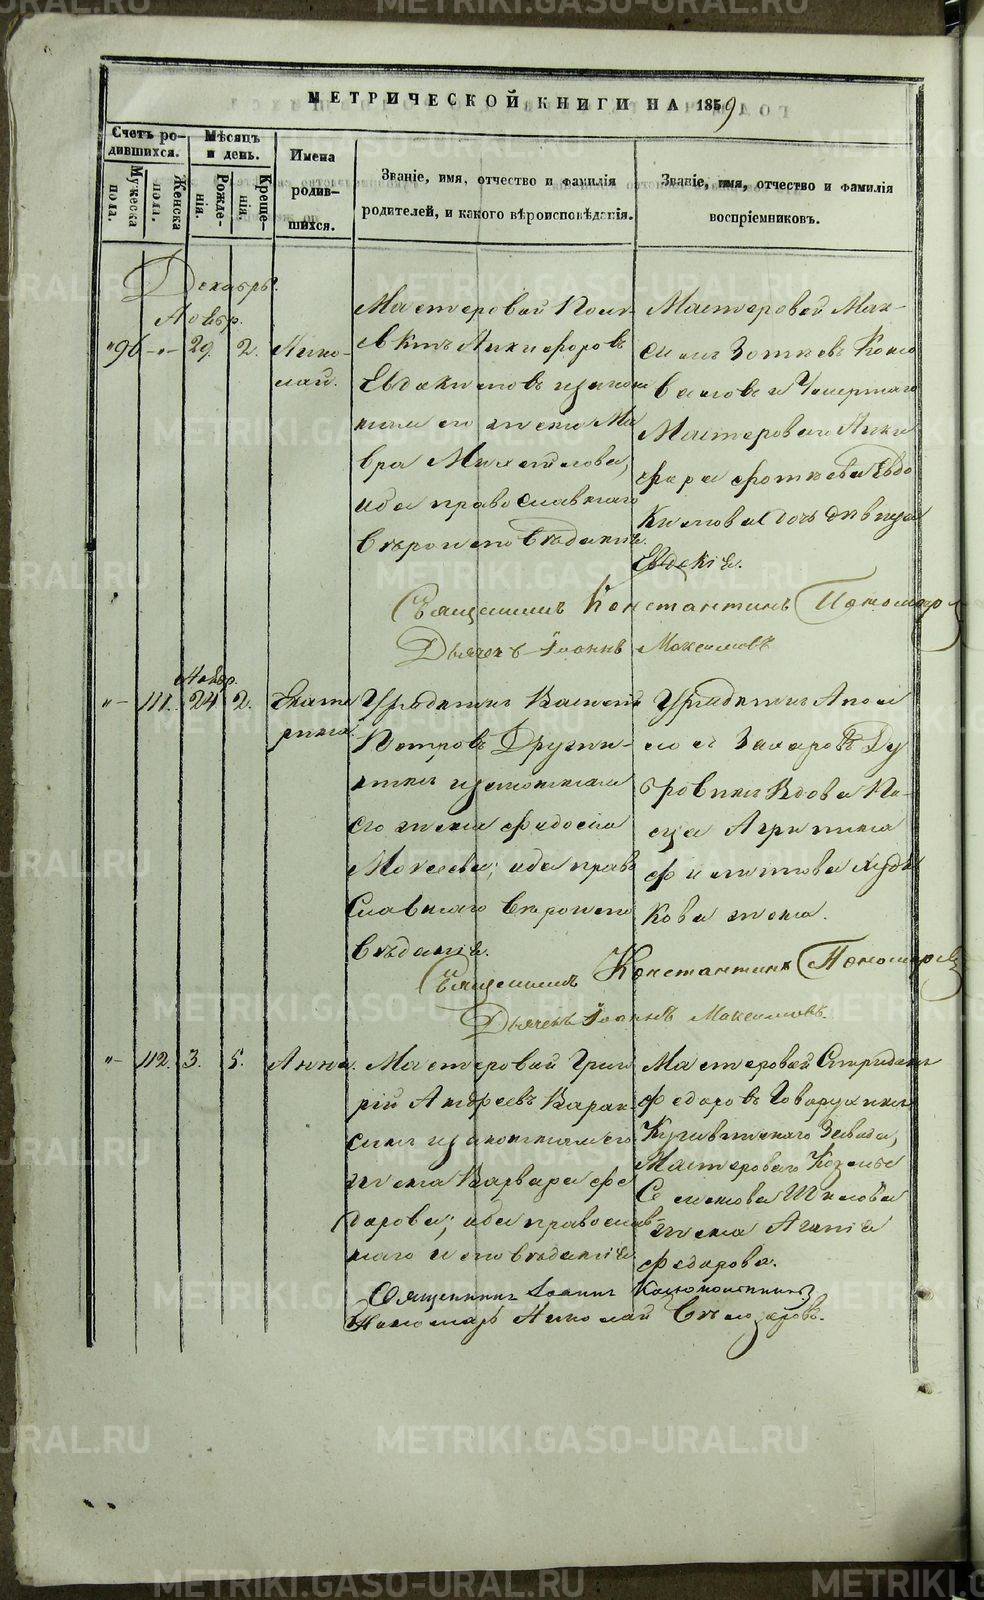 МЕТРИЧЕСКОЙ КНИГИ НА 1859
Счетъ ро-
дившихся.
Мужеска
пола.
Женска
пола.
Мѣсяцъ
и день.
Рожде-
нія.
Креще-
нія.
Имена
родив-
шихся.
Званіе, имя, отчество и фамилія
родителей, и какого вѣроисповѣданія.
Званіе, имя, отчество и фамилія
воспріемниковъ.
Декабрь.
Ноябр.
96 29. 2.
Нико-
лай.
Мастеровой Поли-
евктъ Никифоровъ
Евдокимовъ и законн
ная его жена Ма
вра Михайлова,
оба православнаго
вѣроисповѣданія.
Мастеровой Мак-
симъ Зотѣевъ Коно
валовъ и Умершаго
Мастероваго Ники
фора Фотѣева Евдо
кимова дочь дѣвица
Евдокія.
Священникъ Константинъ Пономарев
Дьячекъ Іоаннъ Максимовъ
Ноябр.
111. 24 2.
Екате
рина.
Урядникъ Василій
Петровъ Дружи-
нинъ и законная
его жена Федосья
Мокеева; оба прав
славнаго вѣроиспо
вѣданія.
Урядникъ Апол
лосъ Захаровъ Ду
бровинъ Вдова Пи-
сца Агрипина
Филиппова Худя
кова жена.
Священникъ Константинъ Пономаревъ
Дьячекъ Іоаннъ Максимовъ.
112. 3. 5.
Анна.
Мастеровой Григо
рій Андреевъ Варак
синъ и законная его
жена Варвара Фе
дорова; оба православ-
наго исповѣданія.
Мастеровой Спиридонъ
Федоровъ Говорухинъ
Кушвинскаго Завода,
Мастероваго Козьмы
Семенова Шилова
жена Агапія
Федорова.
Священникъ Іоаннъ
Пономарь Николай Бѣлозеровъ.
METRIKI.GASO-URAL.RU